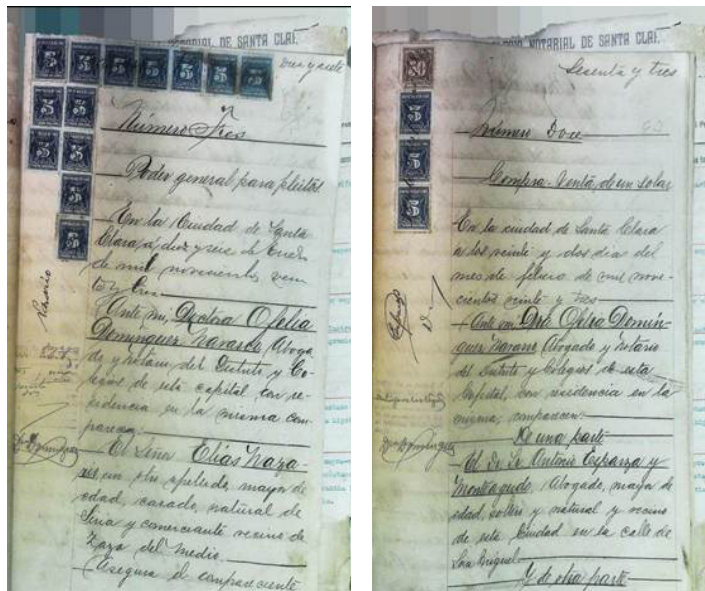 NOTARIAL DE SANTA CLAR.
Diez y siete
Número Tres
Poder general para pleitos
En la Ciudad de Santa
Clara, a diez y seis de Enero
de mil novecientos vein
te y tres
Ante mi, Doctora Ofelia
Domínguez Navarro, Aboga
do y Notario del Distrito y Co-
legios de esta capital con re-
sidencia en la misma com-
parece:
El Señor Elías Naza-
un solo apellido, mayor de
edad, casado, natural de
Siria y comerciante vecino de
Zaza del Medio.
Asegura el compareciente
NOTARIAL DE SANTA CLAR.
Sesenta y tres
63
Número Doce
Compra-Venta de un solar
En la ciudad de Santa Clara
a los veinte y dos dias del
mes de febrero de mil nove-
cientos veinte y tres
Ante mi Dra Ofelia Domín-
guez Navarro, Abogado y Notario
del Distrito y Colegios de esta
Capital, con residencia en la
misma, comparecen:
De una parte
El Dr Antonio Esparza y
Monteagudo, Abogado, mayor de
edad, soltero y natural y vecino
de esta Ciudad en la calle de
San Miguel
Y de otra parte